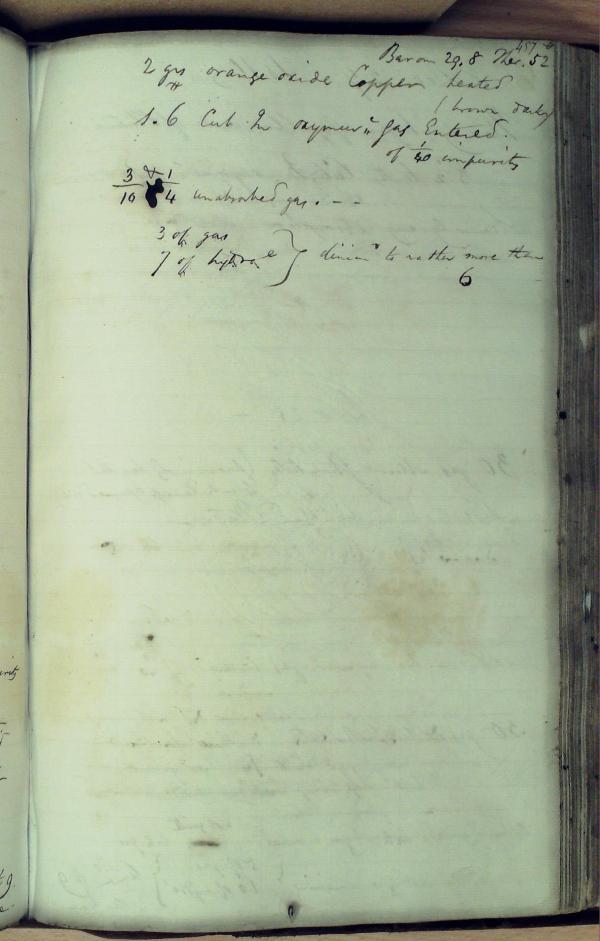 157
Barom 29.8 Ther. 52
2 grs orange oxide Copper heated
( brown dark
1.6 Cub In oxymur^c gas Entered.
of 1/40 impurity
3/10 & 1/4 unabsorbed gas. - -
3 of gas
7 of hydro^e } dimin^d to rather more than
6